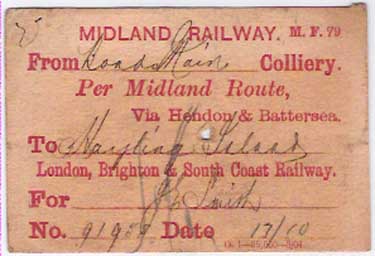 MIDLAND RAILWAY. M. F. 79
From Loads Main Colliery.
Per Midland Route,
Via Hendon & Battersea.
To Hayling Island
London, Brighton & South Coast Railway.
For Smith
No. 91959 Date 17/10